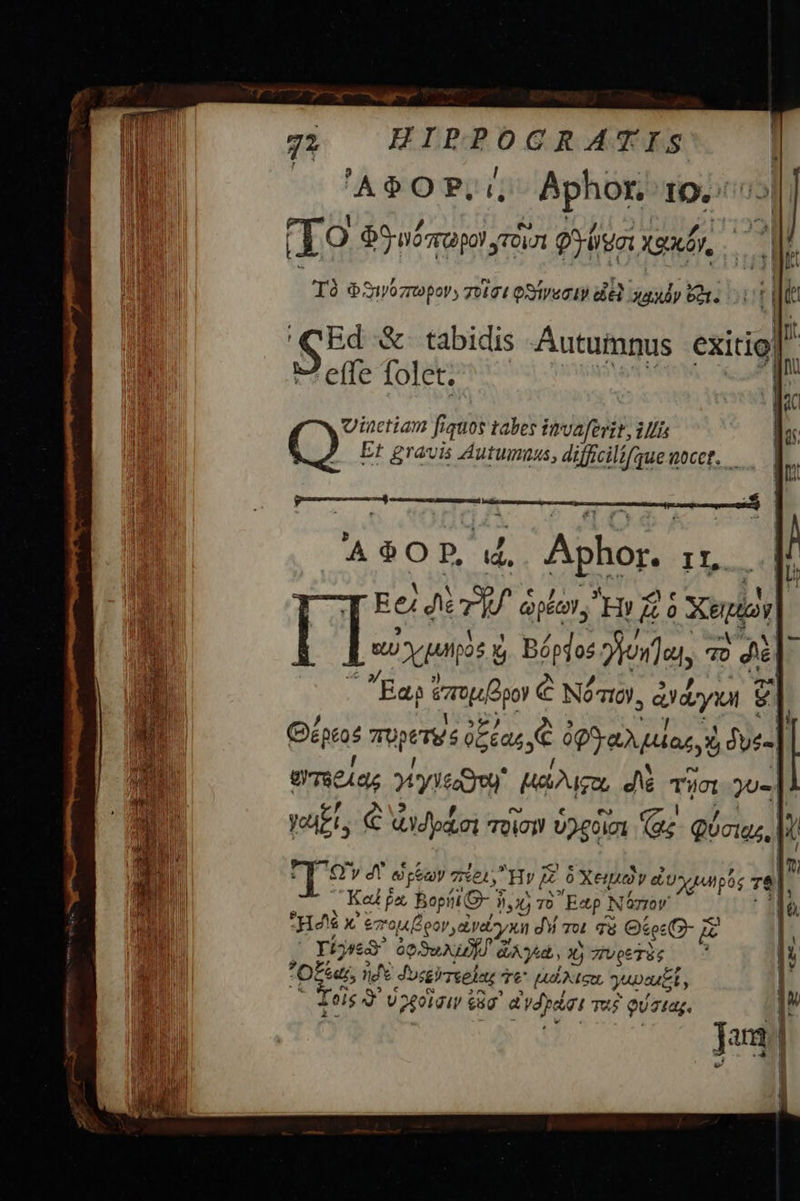 72 HIPPOCRATIS
ἈΦΟΡ. ί, Aphor. 10.
ΤΟ Φθινόπωρον τοῖσι φθίνουσι κακόν.
Τὸ Φθινόπωρον, τοῖσι φθίνουσιν ἀεὶ κακόν ἐστι.
SEd & tabidis Autumnus exitio
esse solet.
Quinetiam siquos tabes invaserit, illis
Et gravis Autumnus, difficilisque nocet.
ἈΦΟΡ. ιά. Aphor. 11.
ΠΕρὶ δὲ τῶν ὡρέων, Ἢν μὲν ὁ Χειμὼν
αὐχμηρὸς καὶ Βόρειος γένηται, τὸ δὲ
Ἔαρ ἔπομβρον καὶ Νότιον, ἀνάγκη τοῦ
Θέρεος πυρετοὺς ὀξέας, καὶ ὀφθαλμίας, καὶ δυσ-
εντερίας γίγνεσθαι· μάλιστα δὲ τῇσι γυ-
ναιξί, καὶ ἀνδράσι τοῖσιν ὑγροῖσι τὰς φύσιας.
ΤΩν δ' ὡρέων πέρι, Ἢν μὲν ὁ Χειμὼν αὐχμηρός τε
Καί ῥα Βορήϊος ᾖ, καὶ τὸ Ἔαρ Νότιον
Ἠδὲ κ' ἔπομβρον, ἀνάγκη δή τοι τοῦ Θέρεος μὲν
Γίγνεσθ' ὀφθαλμῶν ἄλγεα, καὶ πυρετὰς
Ὀξέας, ἠδὲ δυσεντερίας τε· μάλιστα γυναιξί,
Τοῖς θ' ὑγροῖσιν ἐᾶσ' ἀνδράσι τὰς φύσιας.
Jam